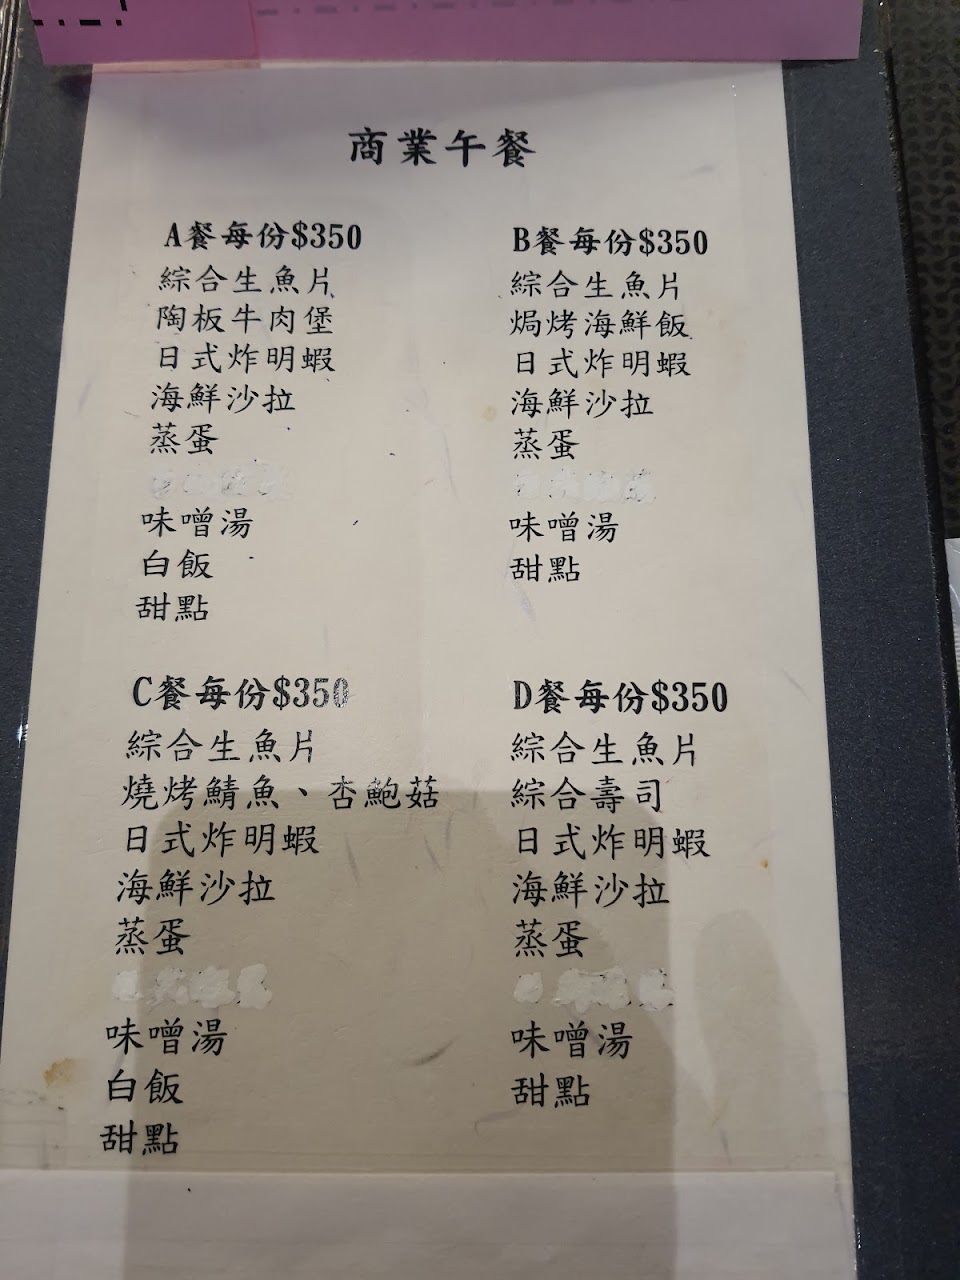 商業午餐
A餐每份$350
綜合生魚片
陶板牛肉堡
日式炸明蝦
海鮮沙拉
蒸蛋
味噌湯
白飯
甜點
B餐每份$350
綜合生魚片
焗烤海鮮飯
日式炸明蝦
海鮮沙拉
蒸蛋
味噌湯
甜點
C餐每份$350
綜合生魚片
燒烤鯖魚、杏鮑菇
日式炸明蝦
海鮮沙拉
蒸蛋
味噌湯
白飯
甜點
D餐每份$350
綜合生魚片
綜合壽司
日式炸明蝦
海鮮沙拉
蒸蛋
味噌湯
甜點